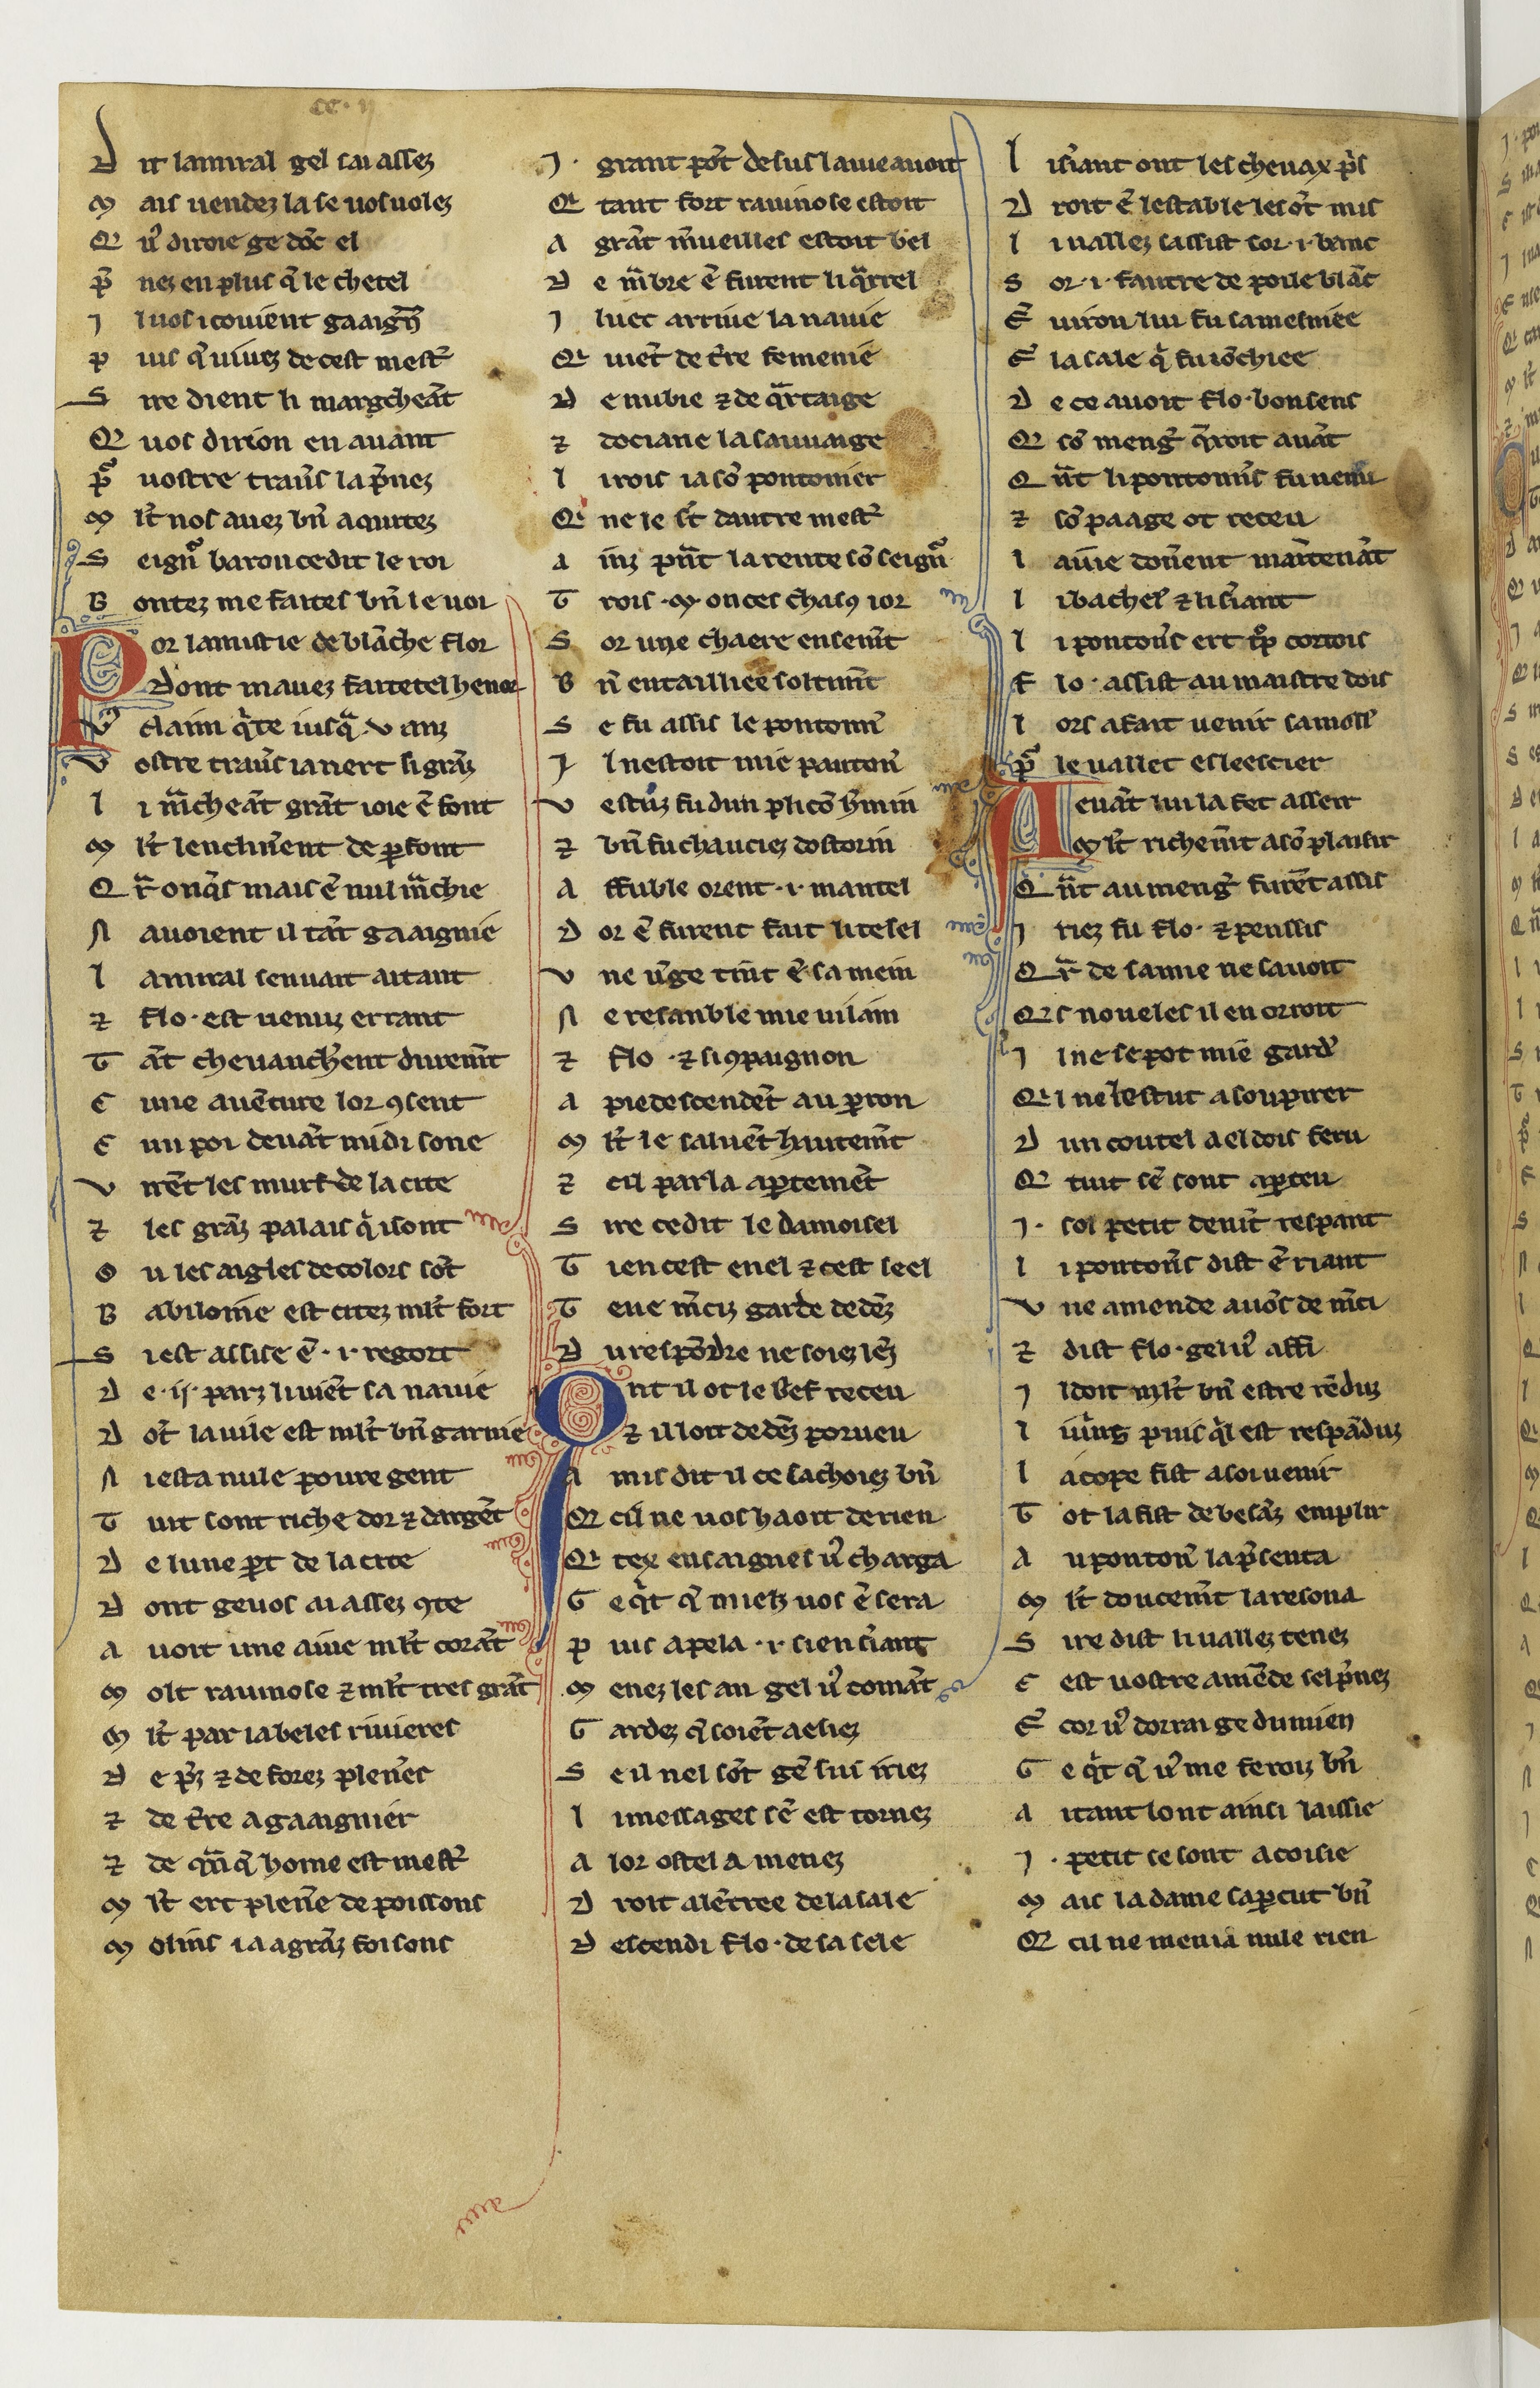 D it lamiral gel sai assez
M ais uendez la se uos uolez
Q u᷒ diroie ge dōc el
p̄ nez en plus q̄ le chetel
J l uos i couient gaaign̄
P uis q̄ uiuez de cest mest᷒
S ire dient li margcheāt
Q uos dirion en auant
P᷒ uostre trau᷒s la p̄nez
M lt᷒ nos auez bn̄ aquitez
S eign᷒ baron ce dit le roi
B ontez me faites bn̄ le uoi
Por lamistie de blāche flor
Dont mauez fait tel henor
V claim q̇te iusq̄ .v. anz
V ostre trau᷒s ia niert si grāz
L i m̄cheāt grāt ioie ē font
M lt᷒ lenclin̄ent de ꝑfont
Q r̄ onq̄s mais ē nul m̄chie
N auoient il tāt gaaignie
L amiral senuait aitant
⁊ flo . est uenuz errant
T āt cheuauch᷒ent duremt̄
C une auēture lor ꝯsent
E un poi deuāt midi sone
V irēt les murs de la cite
⁊ les grāz palais q̇ i sont
O u les aigles de colors sōt
B abiloine est citez mlt᷒ fort
S i est assise ē . i . regort
D e . ij . parz li uiēt la nauie
D ōt la uile est mlt᷒ bn̄ garnie
N i esta nule poure gent
T uit sont riche dor ⁊ dargēt
D e lune ꝑt de la cite
D ont ge uos ai assez ꝯte
A uoit une aiue mlt᷒ corāt
M olt rauinose ⁊ mlt᷒ tres grāt
M lt᷒ par ia beles riuieres
D e p̄z ⁊ de forez plen᷒es
⁊ de t᷒re a gaaignier
⁊ de qn̄q̄ home est mest᷒
M lt᷒ ert plen᷒e de poissons
M olins i a a grāz foisons
J . grant pōt desus laiue auoit
Q tant fort rauinose estoit
A grāt m᷒ueilles estoit bel
D e m̄bre ē furent li q̄rrel
J luec arriue la nauie
Q uiēt de t᷒re femenie
D e nubie ⁊ de q̄rtaige
⁊ dociane la sauuaige
L i rois i a sō pontonier
Q ne le s᷒t dautre mest᷒
A inz pn̄t la rente sō seign᷒
T rois . m . onces chasꝯ ior
S or une chaere ensemt̄
B n̄ entailliee soltimt̄
S e fu assis le pontonn᷒
J l nestoit mie pauton᷒
V estuz fu dun pliçō h᷒min
⁊ bn̄ fu chauciez dostorin
A ffuble orent . i . mantel
D or ē furent fait li tesel
V ne u᷒ge tint ē sa mein
N e resanble mie uilain
⁊ flo . ⁊ si ꝯpaignon
A pie descendēt au ꝑron
M lt᷒ le saluēt hautemt̄
⁊ cil parla aꝑtemēt
S ire ce dit le damoisel
T ien cest enel ⁊ cest seel
T eue m᷒ciz garde dedēz
D u respōdre ne soiez lēz
Ont il ot le bref receu
⁊ il loit dedēz porueu
A mis dit il ce sachoiz bn̄
Q cil ne uos haoit de rien
Q tex ensaignes u᷒ charga
G e q̇t q̄ mielz uos ē sera
P uis apela . i . sien s᷒iant
M enez les an gel u᷒ comāt
G ardez q̄ soiēt aesiez
S e il nel sōt gē sui iriez
L i messages sē est tornez
A lor ostel a menez
D roit a lētree de la sale
D escendi flo . de sa sele
L i s᷒iant ont les cheuax p̄s
D roit ē lestable les ōt mis
L i uallez sassist sor . i . banc
S or . i . fautre de poile blāc
E᷒ uiron lui fu sa mesniee
E᷒ la sale q̇ fu iōchiee
D e ce auoit flo . bon sens
Q sō meng᷒ q̄roit auāt
Q n̄t li pontonn᷒s fu uenu
⁊ sō paage ot receu
L aiue donēnt maīntenāt
L i bachel᷒ ⁊ li s᷒iant
L i ponton᷒s ert tꝓ cortois
F lo . assist au maistre dois
L ors a fait uenir sa moill᷒
P᷒ le uallet esleescier
Deuāt lui la fet asseir
Mlt᷒ richemt̄ a sō plaisir
Q n̄t au meng᷒ furēt assis
J riez fu flo . ⁊ pensis
Q r̄ de samie ne sauoit
Q s noueles il en orroit
J l ne se pot mie gard᷒
Q l ne lestut a soupirer
D un coutel a el dois feru
Q tuit sē sont aꝑceu
J . sol petit deuīt respant
L i ponton᷒s dist ē riant
V ne amende auōs de m᷒ci
⁊ dist flo . gel u᷒ affi
J l doit mlt᷒ bn̄ estre rēduz
L i uīns puis q̇l est respāduz
L a cope fist a soi uenir
T ot la fist de besāz emplir
A u ponton᷒ la p̄senta
M lt᷒ doucemt̄ laresona
S ire dist li uallez tenez
C est uostre amēde sel p̄nez
E᷒ cor u᷒ dorrai ge du mien
G e q̇t q̄ u᷒ me feroiz bn̄
A itant lont ainsi laissie
J . petit se sont acoisie
M ais la dame saꝑcut bn̄
Q cil ne meniā nule rien